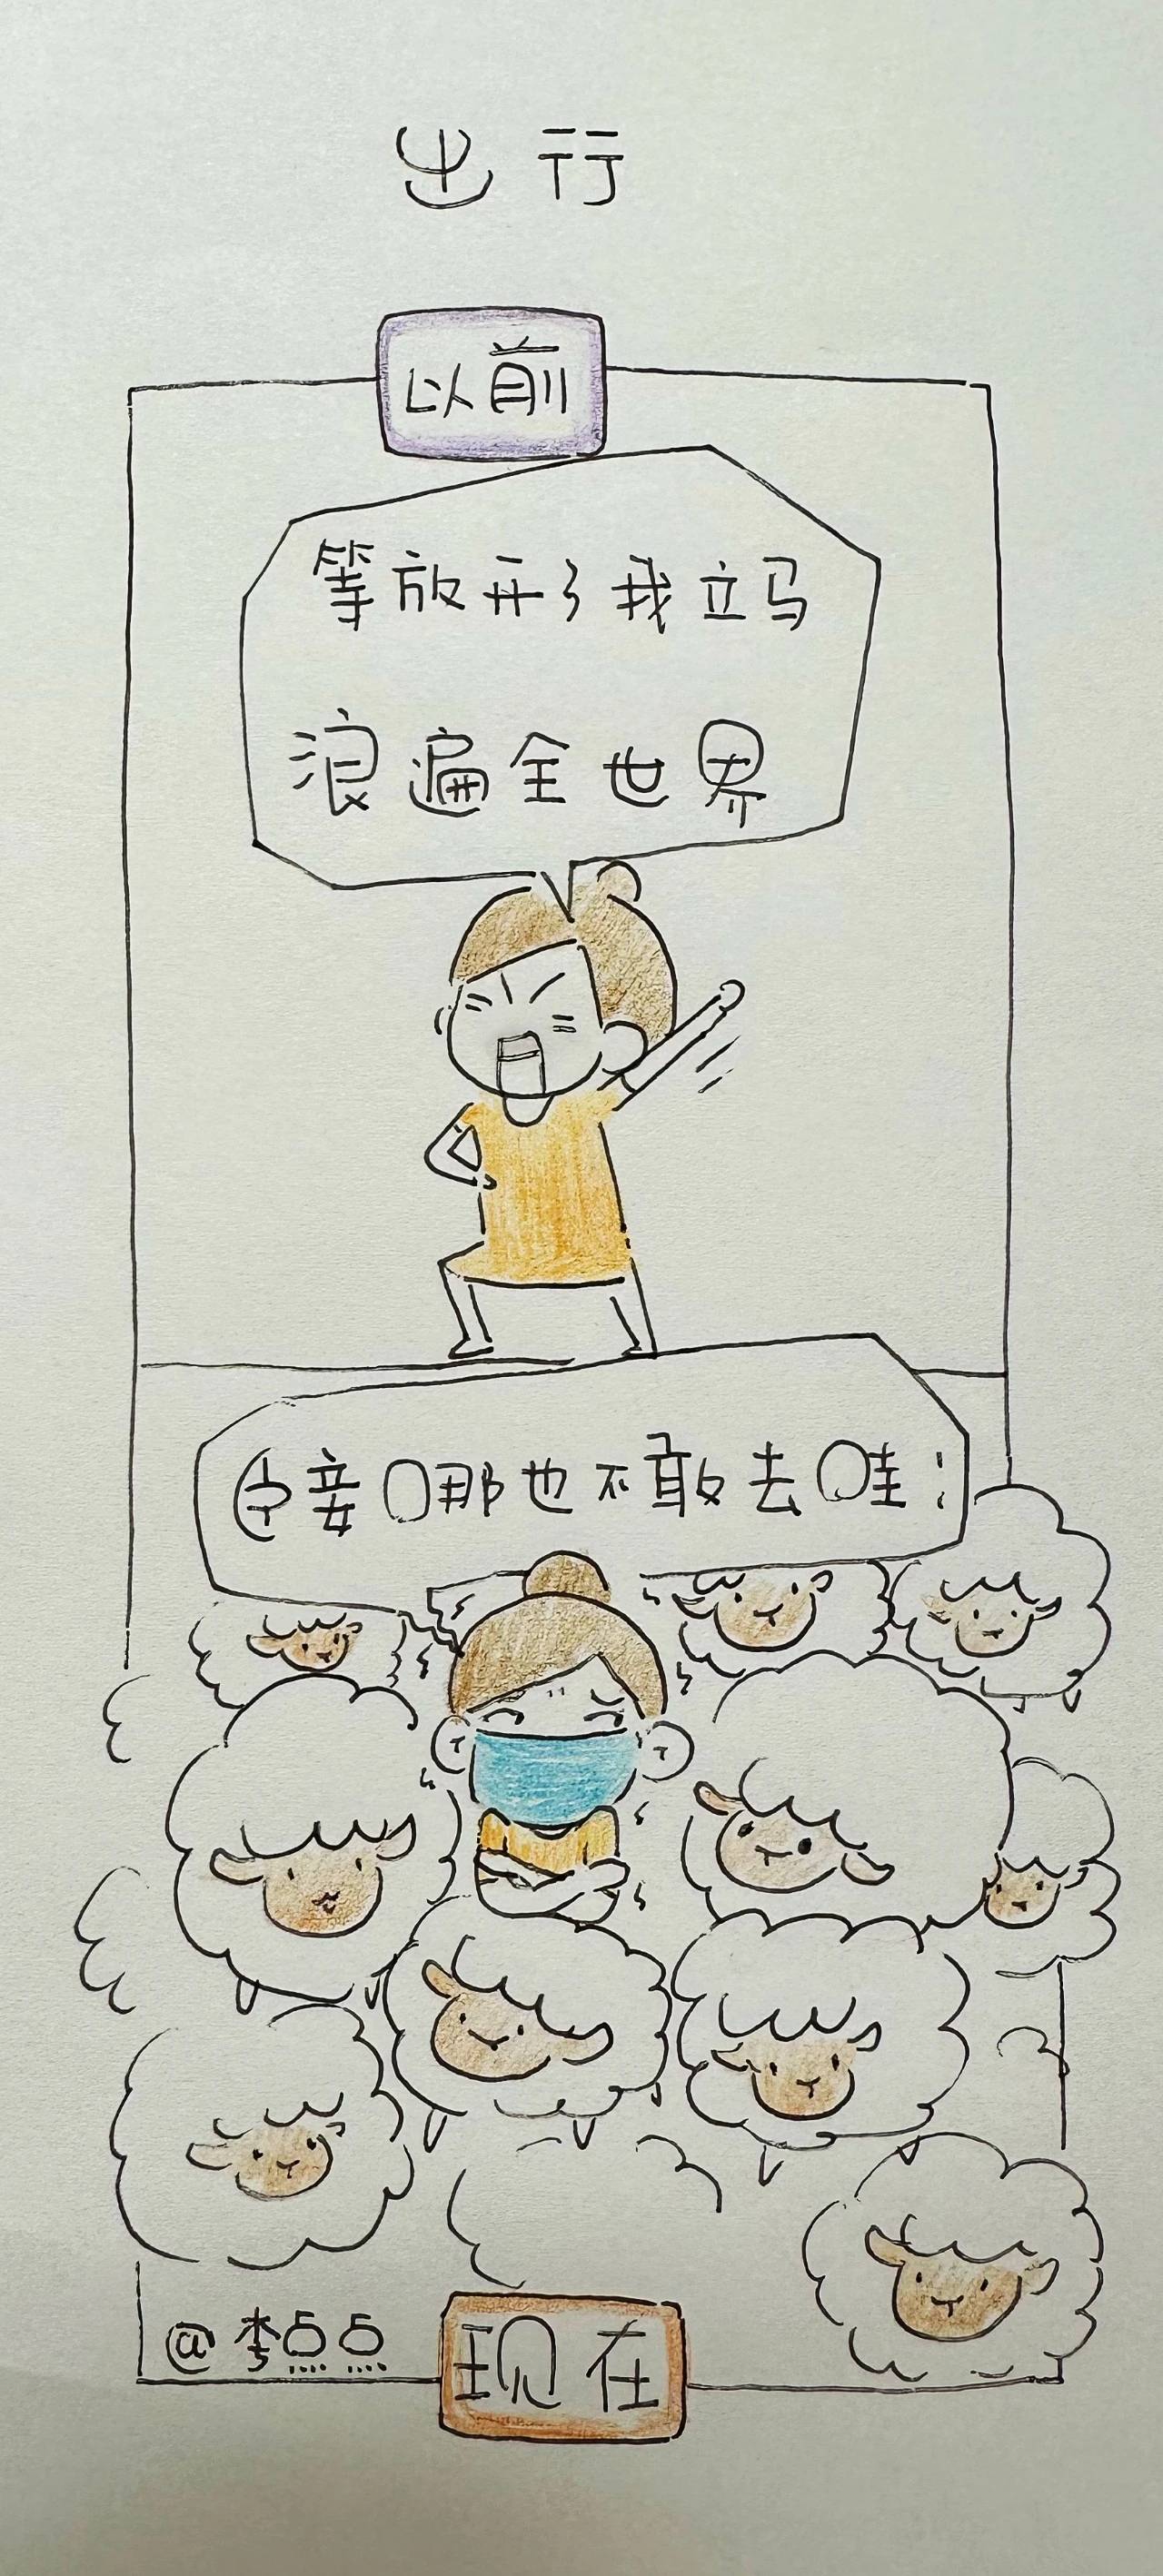 出行
以前
等放开了我立马
浪遍全世界
臣妾哪也不敢去哇!
@李点点
现在